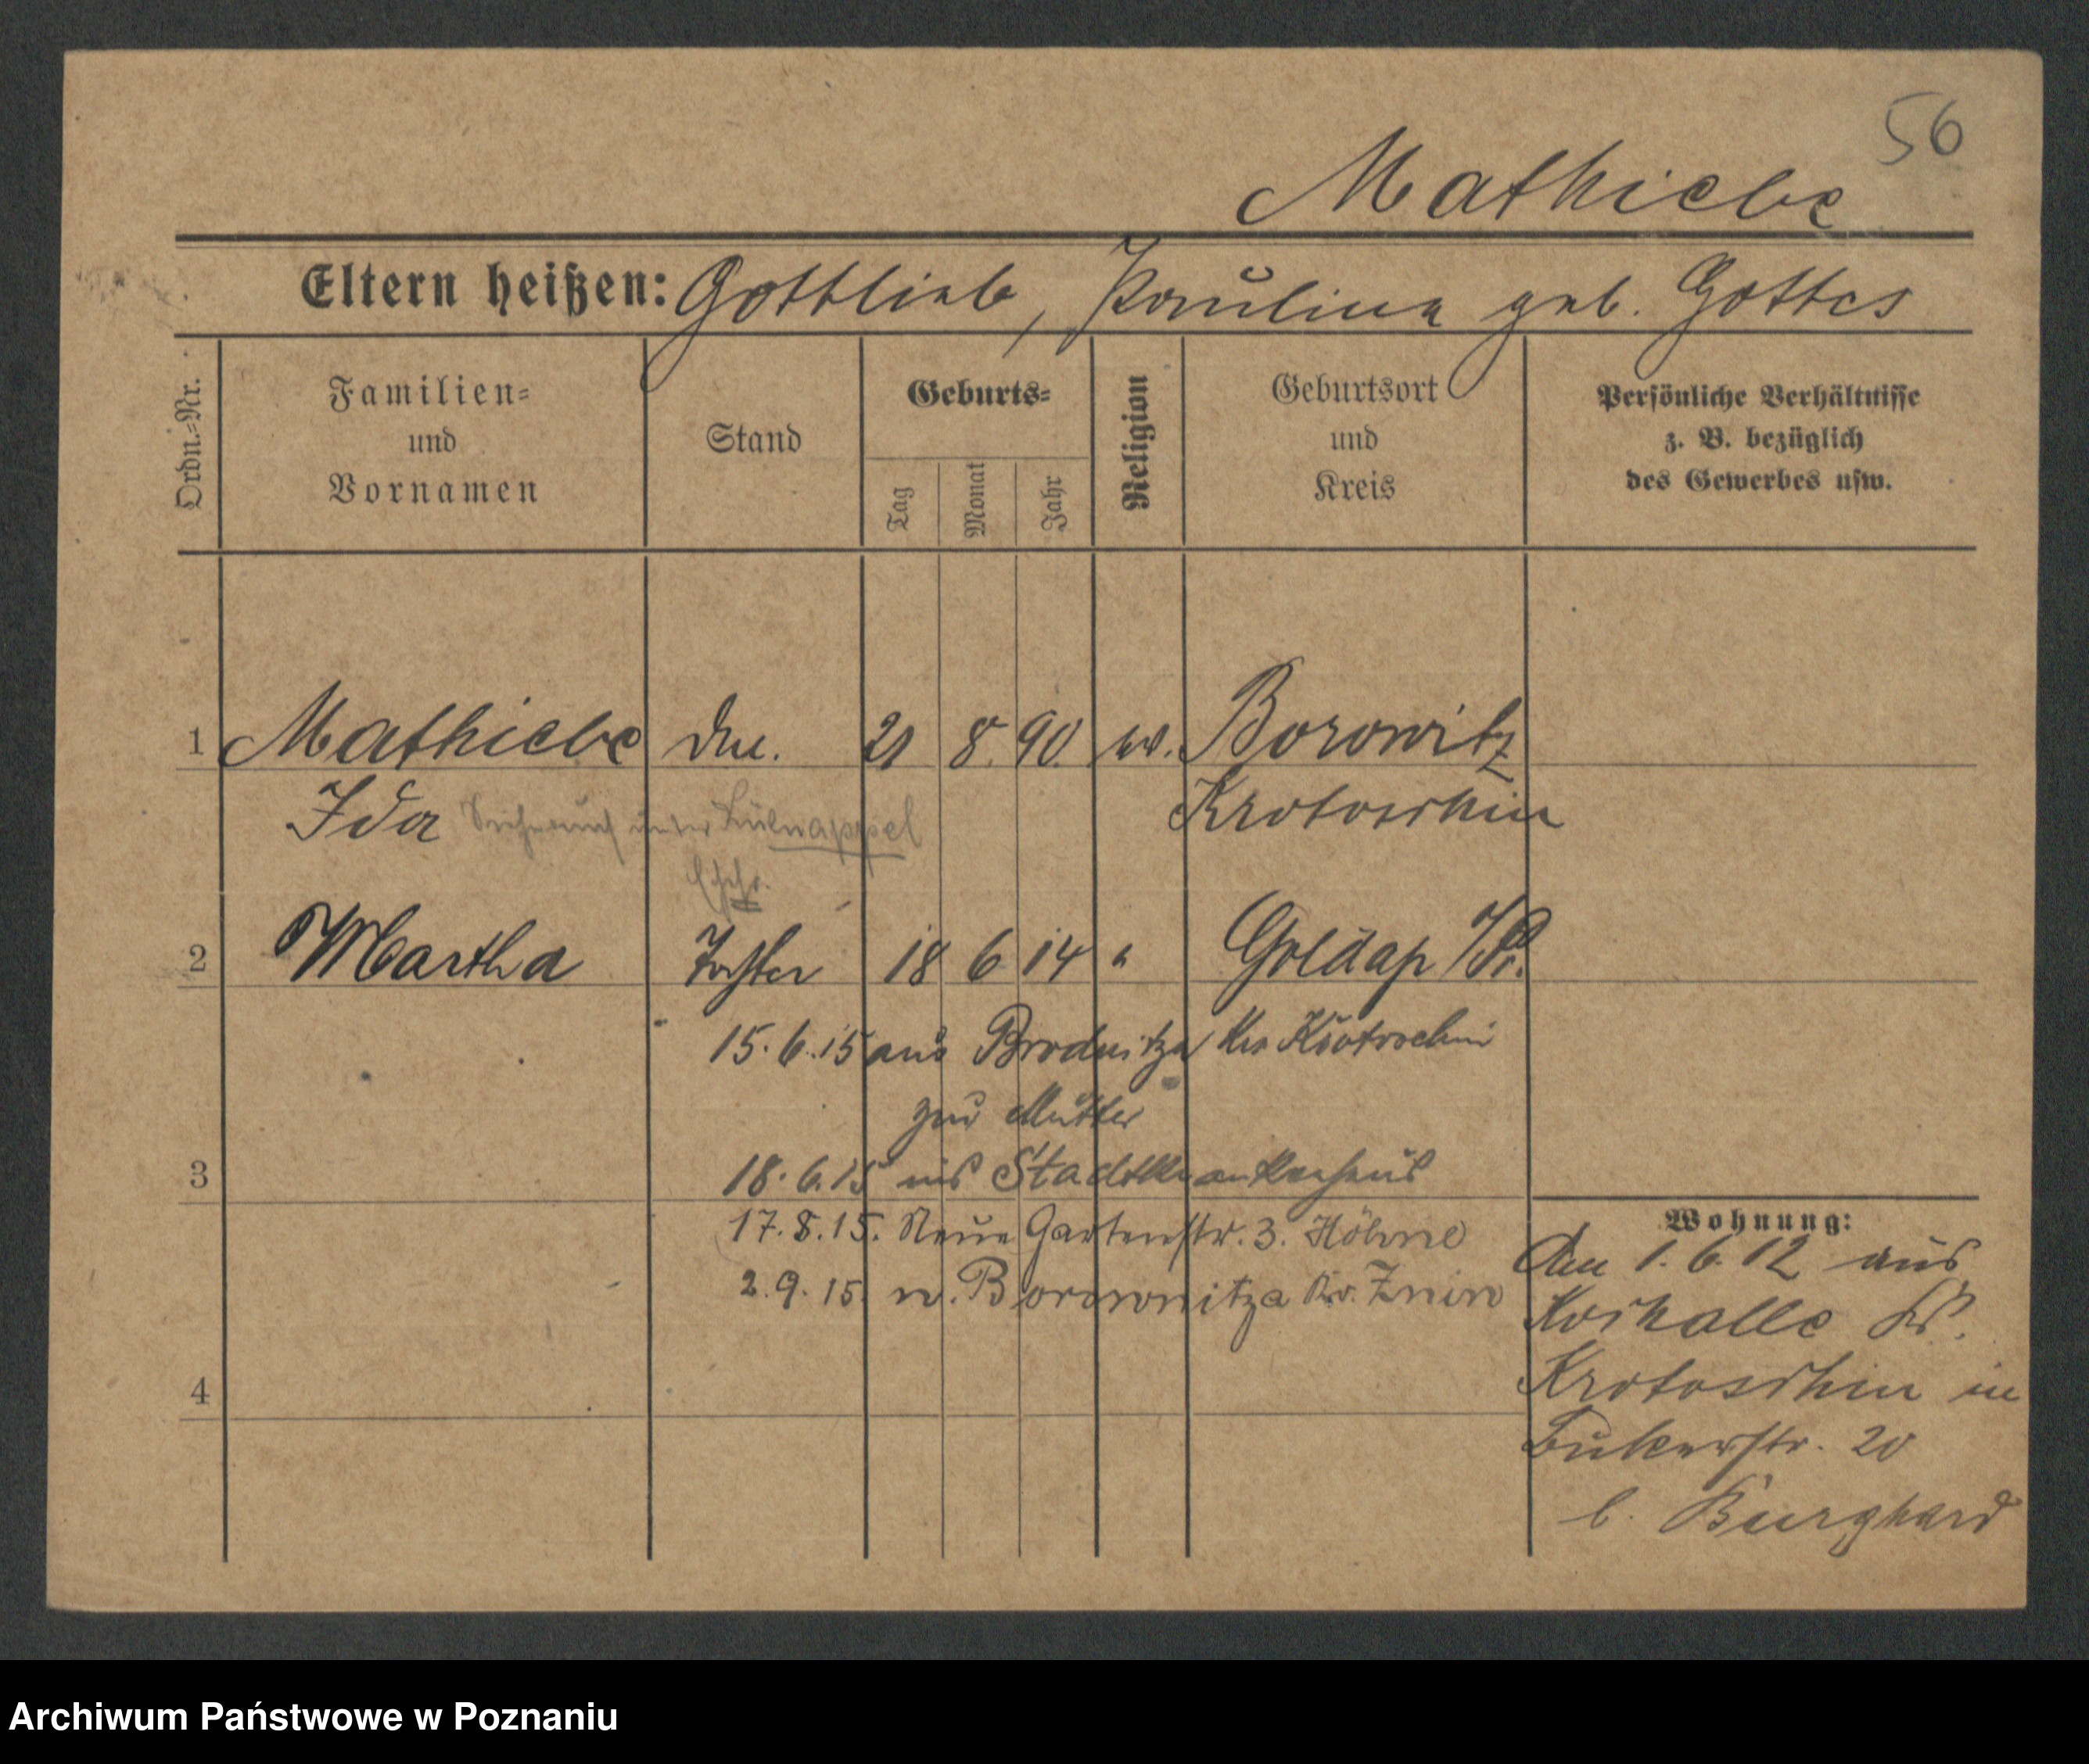 56
Mathiebe
Eltern heißen: Gottlieb, Pauline geb. Gottes
Ordn.-Nr.
Familien-
und
Vornamen
Stand
Geburts-
Tag
Monat
Jahr
Religion
Geburtsort
und
Kreis
Persönliche Verhältnisse
z. B. bezüglich
des Gewerbes usw.
1 Mathiebe 21 8. 90. ev. Borowitz
Ida unter Krotoschin
2 Martha Tochter 18 6 14 " Goldap
15.6.15 aus Brodnitza Kr Krotoschin
zur Mutter
3 18.6.15 ins Stadtkrankenhaus
17.8.15. Neue Gartenstr. 3. Höhne
2.9.15. n. Borownitza Kr. Znin
4
Wohnung:
Am 1.6.12 aus
Kr.
Krotoschin in
Bukerstr. 20
b. Burghard
Archiwum Państwowe w Poznaniu